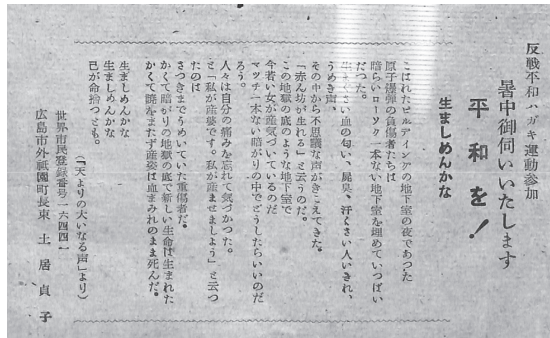 反戦平和ハガキ運動参加
暑中御伺いいたします
平和を！
生ましめんかな
こはれたビルデイングの地下室の夜であつた
原子爆弾の負傷者たちは
暗らいローソク一本ない地下室を埋めていつぱい
だつた。
生まぐさい血の匂い、屍臭、汗くさい人いきれ、
うめき声、
その中から不思議な声がきこえてきた。
「赤ん坊が生れる」と云うのだ。
この地獄の底のような地下室で
今若い女が産気づいているのだ
マッチ一本ない暗がりの中でどうしたらいいのだ
ろう。
人々は自分の痛みを忘れて気づかつた。
と「私が産婆です。私が産ませましよう」と云つ
たのは
さつきまでうめいていた重傷者だ。
かくて暗がりの地獄の底で新しい生命は生まれた
かくて暁をまたず産婆は血まみれのまま死んだ。
生ましめんかな
生ましめんかな
己が命捨つとも。
（「天よりの大いなる声」より）
世界市民登録番号一六四四一
広島市外祇園町長束 土居貞子